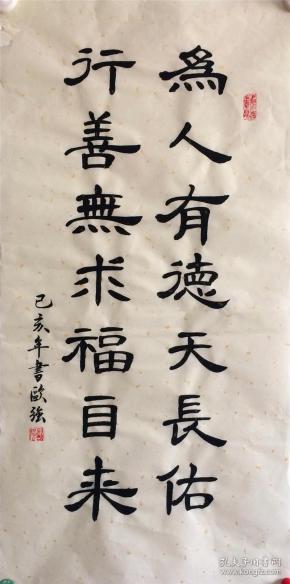 為人有德天長佑
行善無求福自来
己亥年書歐強
孔夫子旧书网